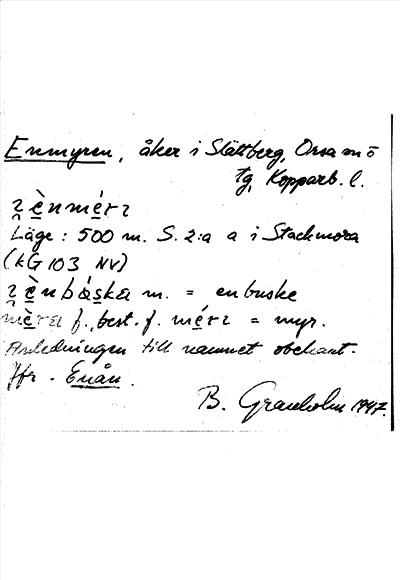 Enmyren, åker i Slättberg, Orsa sn ö
tg, Kopparb. l.
ɿ̯ è̱ n m é̱ r ɿ
Läge: 500 m. S. 2:a a i Stackmora
(kG 103 NV)
ɿ̯ è̱ n b á s̱ k a m. = enbuske
mèra f., best. f. mé̱rɿ = myr.
Anledningen till namnet obekant.
Jfr. Enån.
B. Granholm 1947.